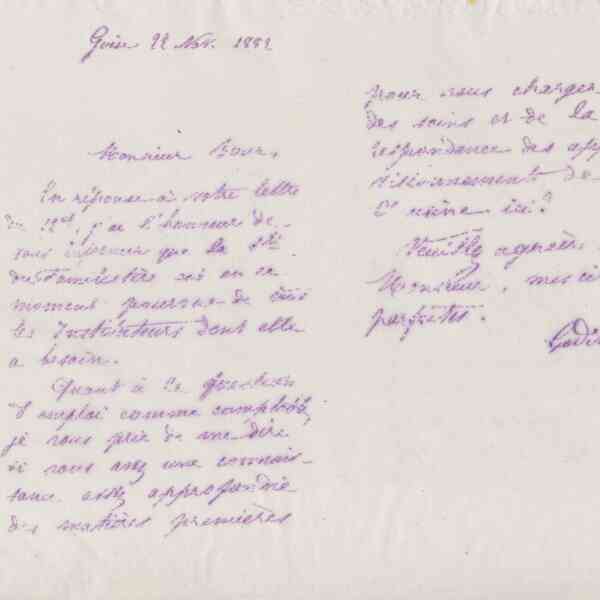 Guise 22 Nov. 1882
Monsieur
En réponse à votre lettre
du 12 ct, j'ai l'honneur de
vous informer que la Sté
du Familistère est en ce
moment pourvue de tous
les Instituteurs dont elle
a besoin.
Quant à la question
d'emploi comme comptable,
je vous prie de me dire
si vous avez une connais-
sance assez approfondie
des matières premières
pour vous charger
des soins et de la
respondance des app
visionnement de
l'usine ici?
Veuillez agréer,
Monsieur, mes ci
parfaites.
Godin